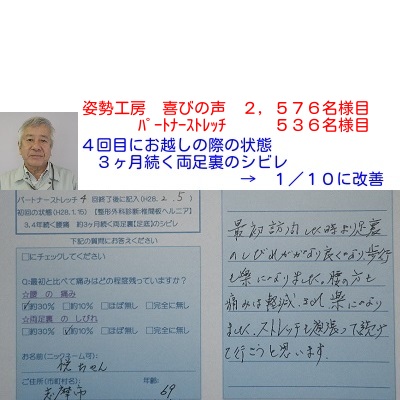 姿勢工房　喜びの声　２，５７６名様目
ﾊﾟｰﾄﾅｰｽﾄﾚｯﾁ　　５３６名様目
４回目にお越しの際の状態
３ヶ月続く両足裏のシビレ
→　１／１０に改善
パートナーストレッチ 4 回終了後に記入(H28. 2. 5 )
初回の状態(H28.1.15) 【整形外科診断:椎間板ヘルニア】
3,4年続く腰痛　約3ヶ月続く両足裏(足底)のシビレ
下記の質問にお答えください
□にチェックしてください
Q:最初と比べて痛みはどの程度残っていますか?
☆腰 の 痛み
☑約30% □約10% □ほぼ無し □完全に無し
☆両足裏 の しびれ
□約30% ☑約10% □ほぼ無し □完全に無し
お名前(ニックネーム可):
ちゃん
ご住所(市町村名):　年齢:
志摩市　69
最初訪問した時より足裏
のしびれがかなり良くなり歩行
も楽になりました。腰の方も
痛みは軽減され楽になり
ました。ストレッチも頑張って続け
て行こうと思います。